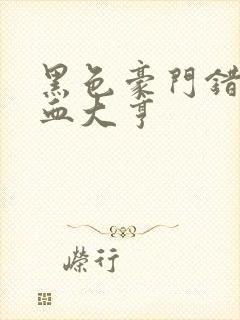 黑色豪門錯
血大亨
嶸行